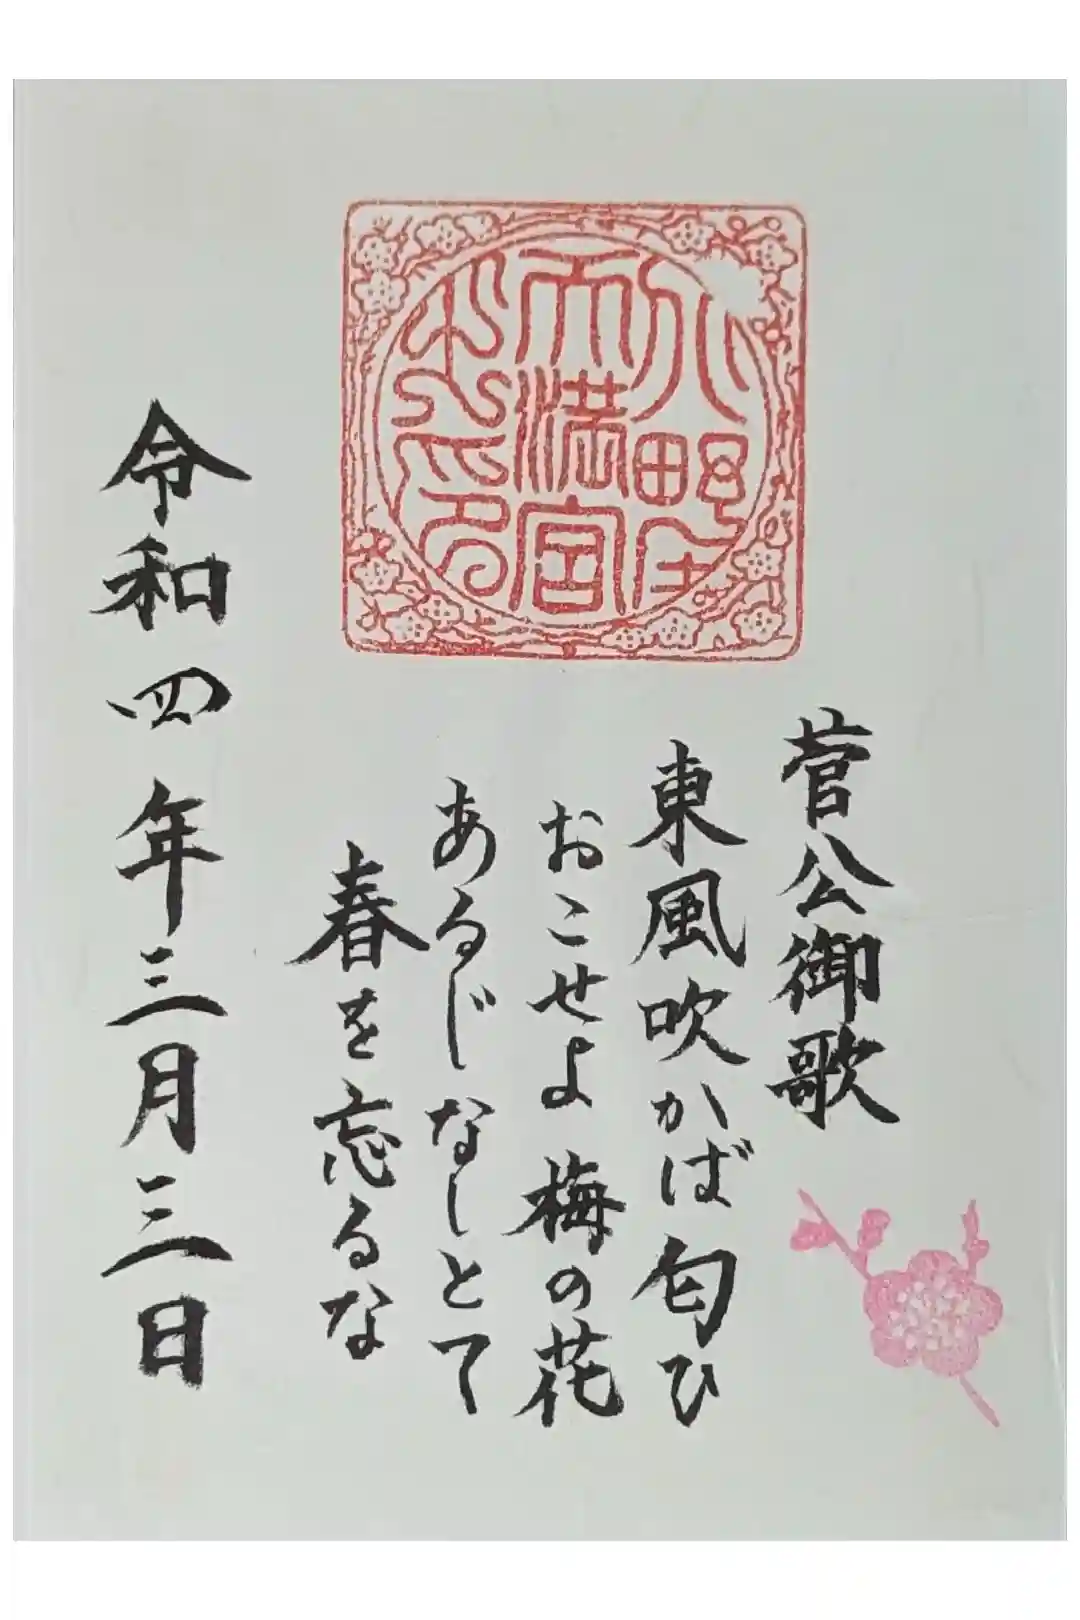 菅公御歌
東風吹かば匂ひ
おこせよ梅の花
あるじなしとて
春を忘るな
令和四年三月三日
天満宮